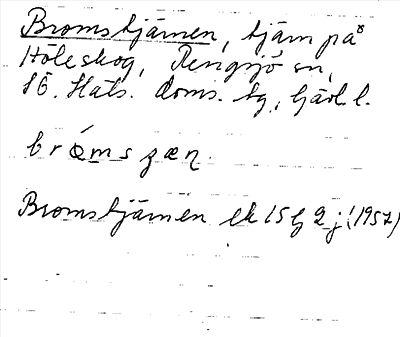 Bromstjärnen, tjärn på
Höleskog, Rengsjö sn,
SÖ. Häls. doms. tg, Gävl. l.
bròmsʒæɳ.
Bromstjärnen ek 15 G 2 j (1957)